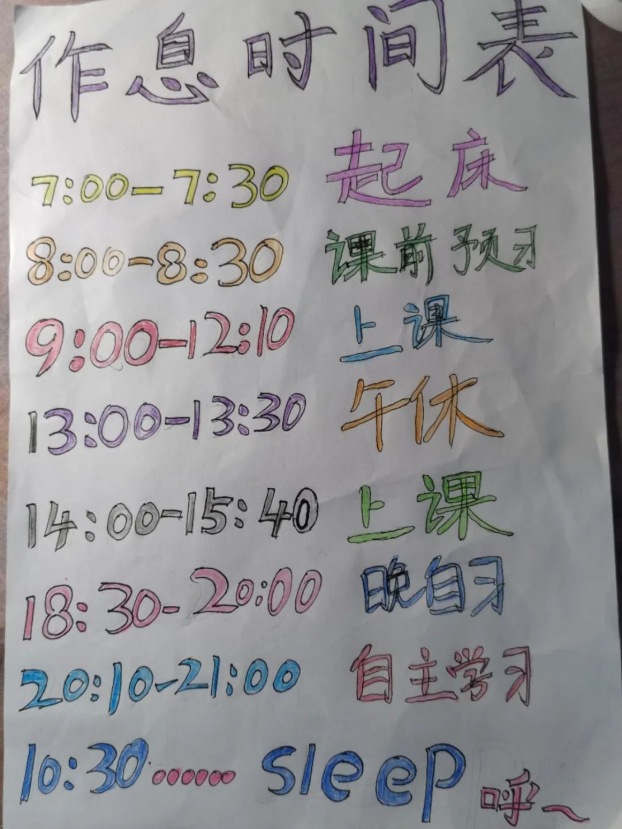 作息时间表
7:00-7:30 起床
8:00-8:30 课前预习
9:00-12:10 上课
13:00-13:30 午休
14:00-15:40 上课
18:30-20:00 晚自习
20:10-21:00 自主学习
10:30...... sleep 呼~